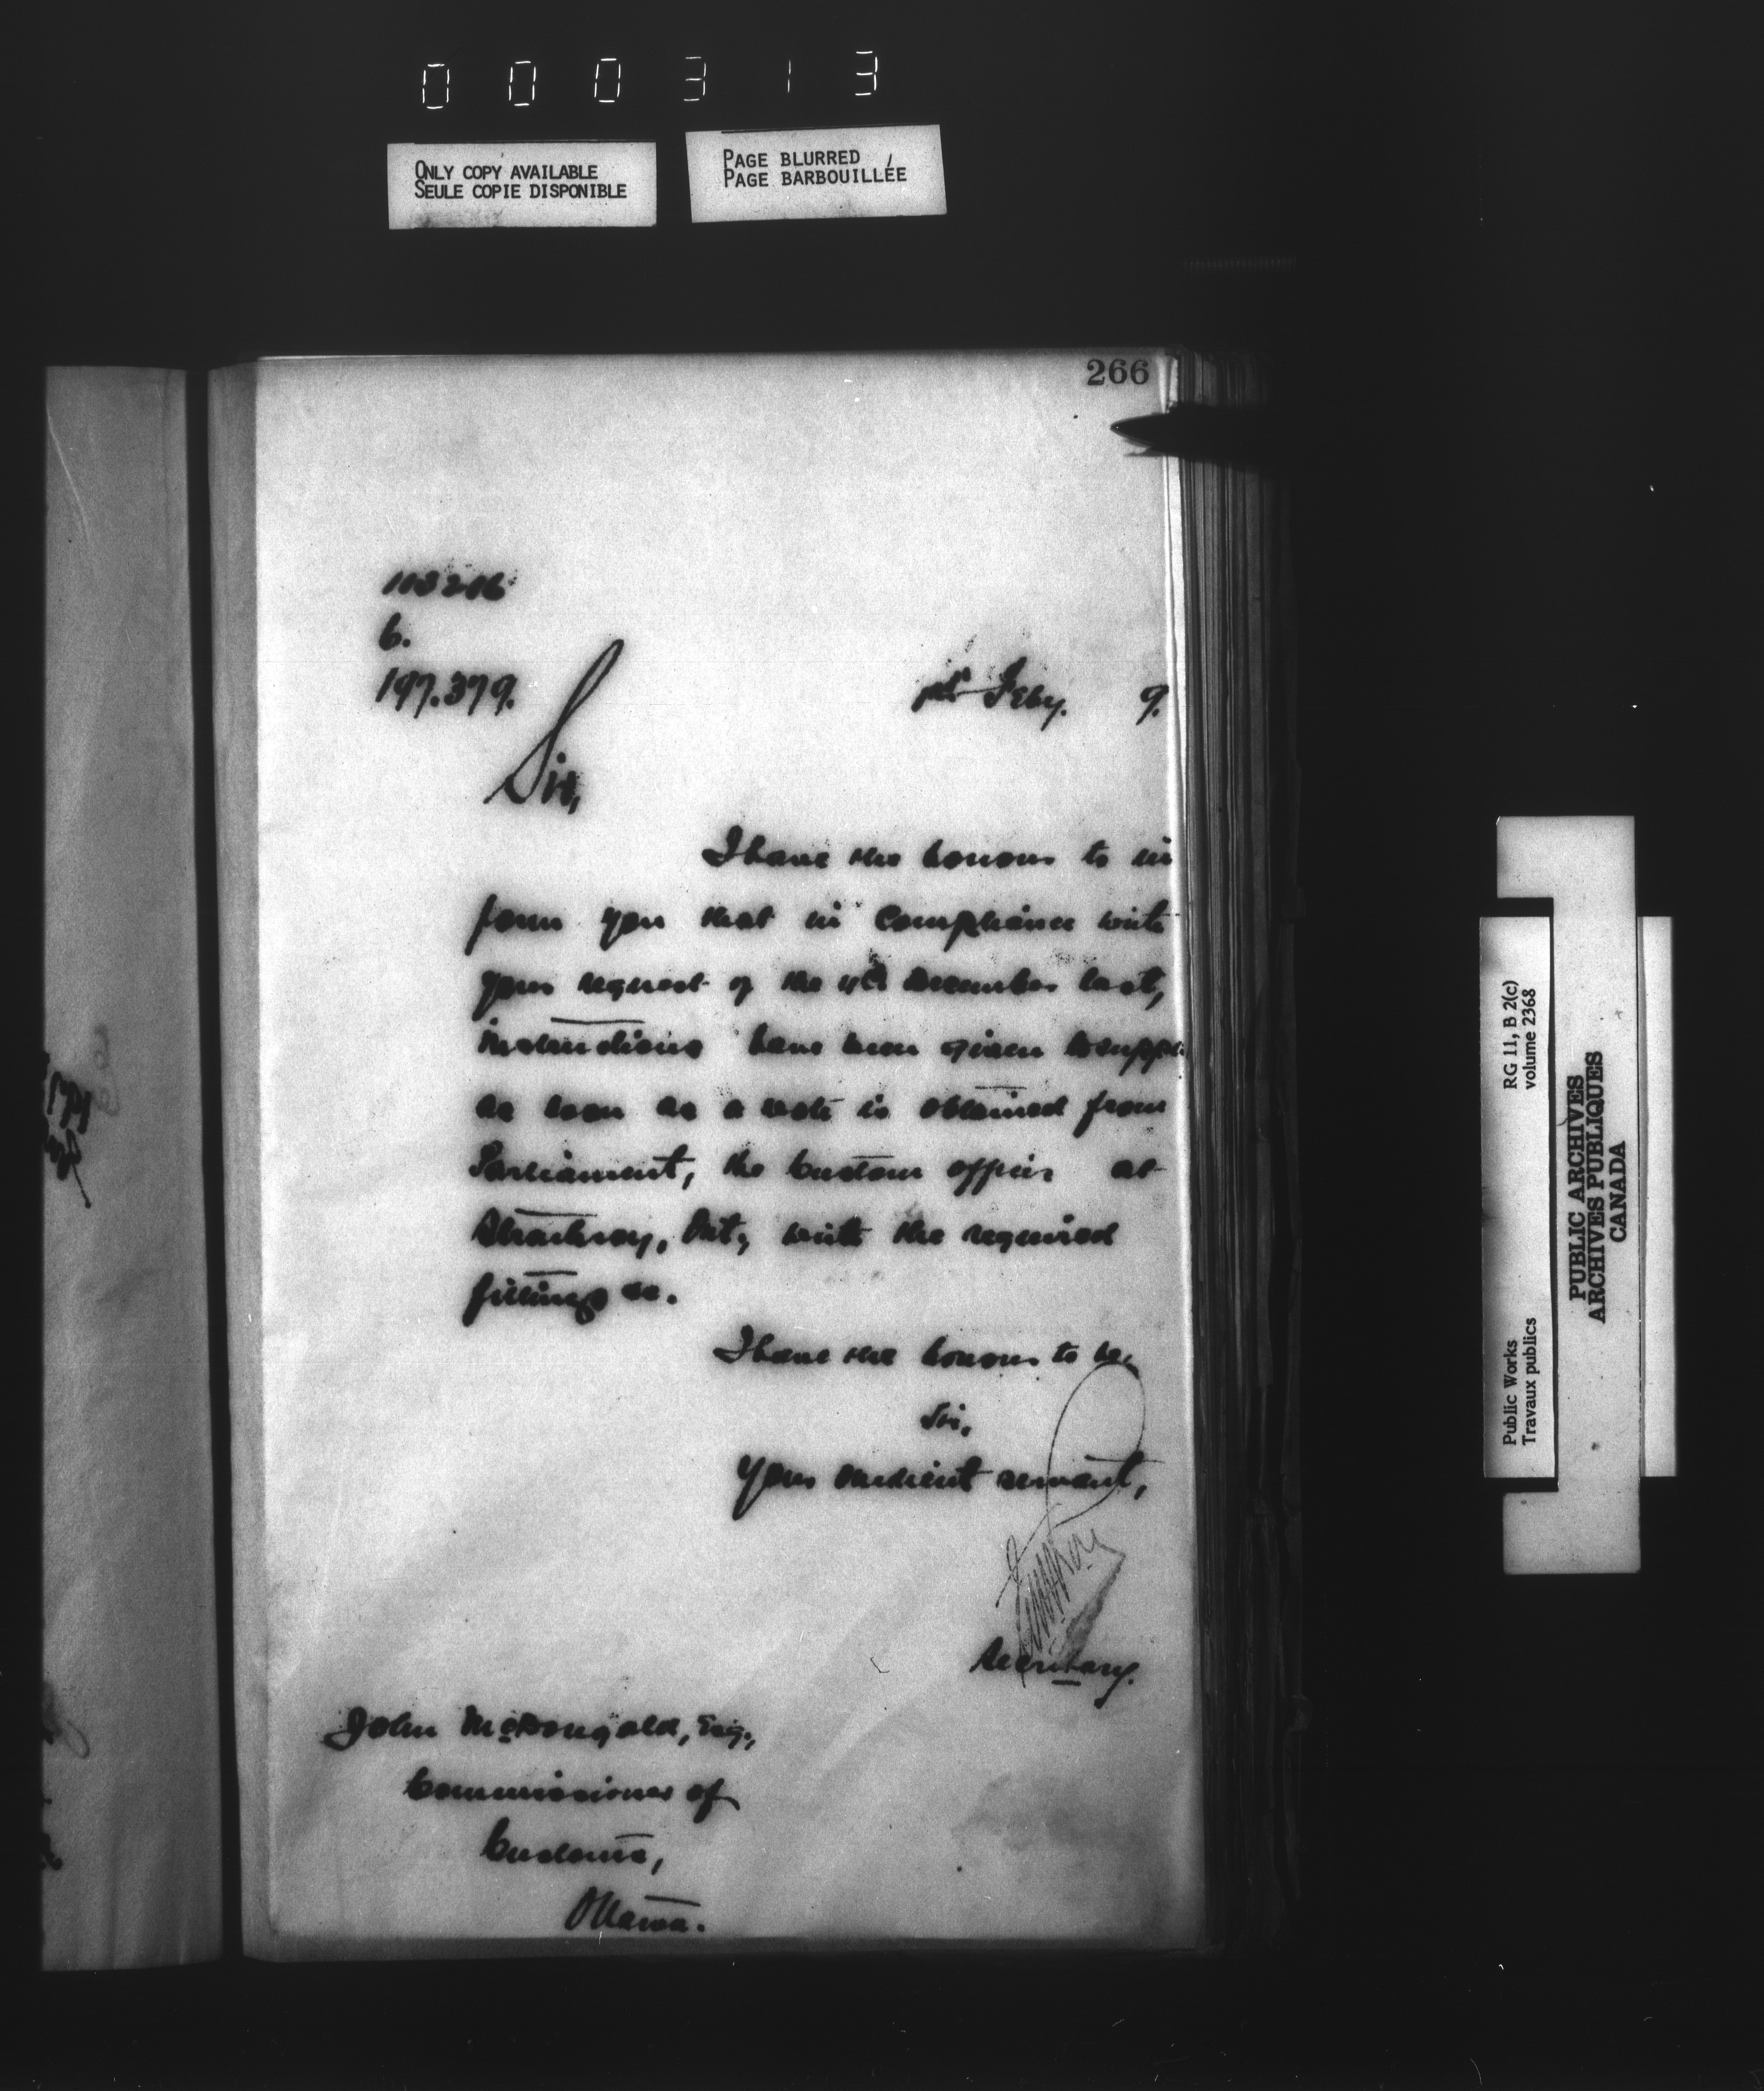 000313
ONLY COPY AVAILABLE
SEULE COPIE DISPONIBLE
PAGE BLURRED
PAGE BARBOUILLÉE
266
6.
197.379.
Feby. 9.
Sir,
I have the honour to in
form you that in compliance with
your request of the December last,
instructions have been given to supply
as soon as a vote is obtained from
Parliament, the Custom office at
Strathroy, Ont, with the required
fittings &c.
I have the honour to be,
Sir,
Your obedient servant,
Secretary.
John McDougald, Esq.,
Commissioner of
Customs,
Ottawa.
Public Works
Travaux publics
RG 11, B 2(c)
volume 2368
PUBLIC ARCHIVES
ARCHIVES PUBLIQUES
CANADA